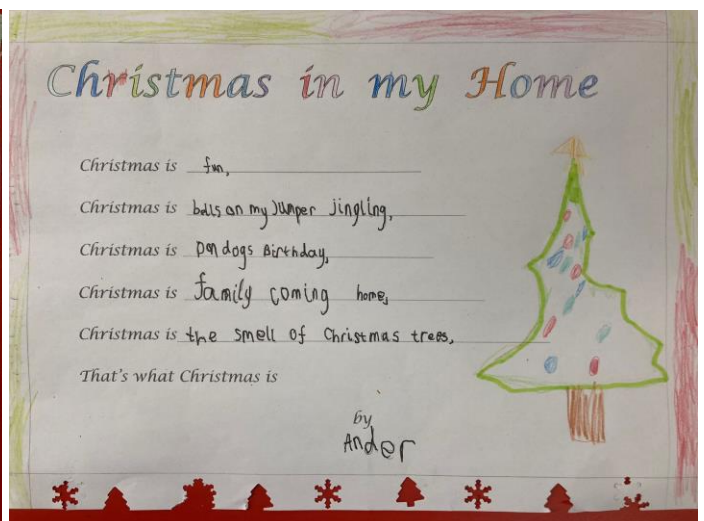 Christmas in my Home
Christmas is fun,
Christmas is bells on my Jumper jingling,
Christmas is dogs Birthday,
Christmas is family coming home,
Christmas is the smell of Christmas trees,
That's what Christmas is
by
Ander